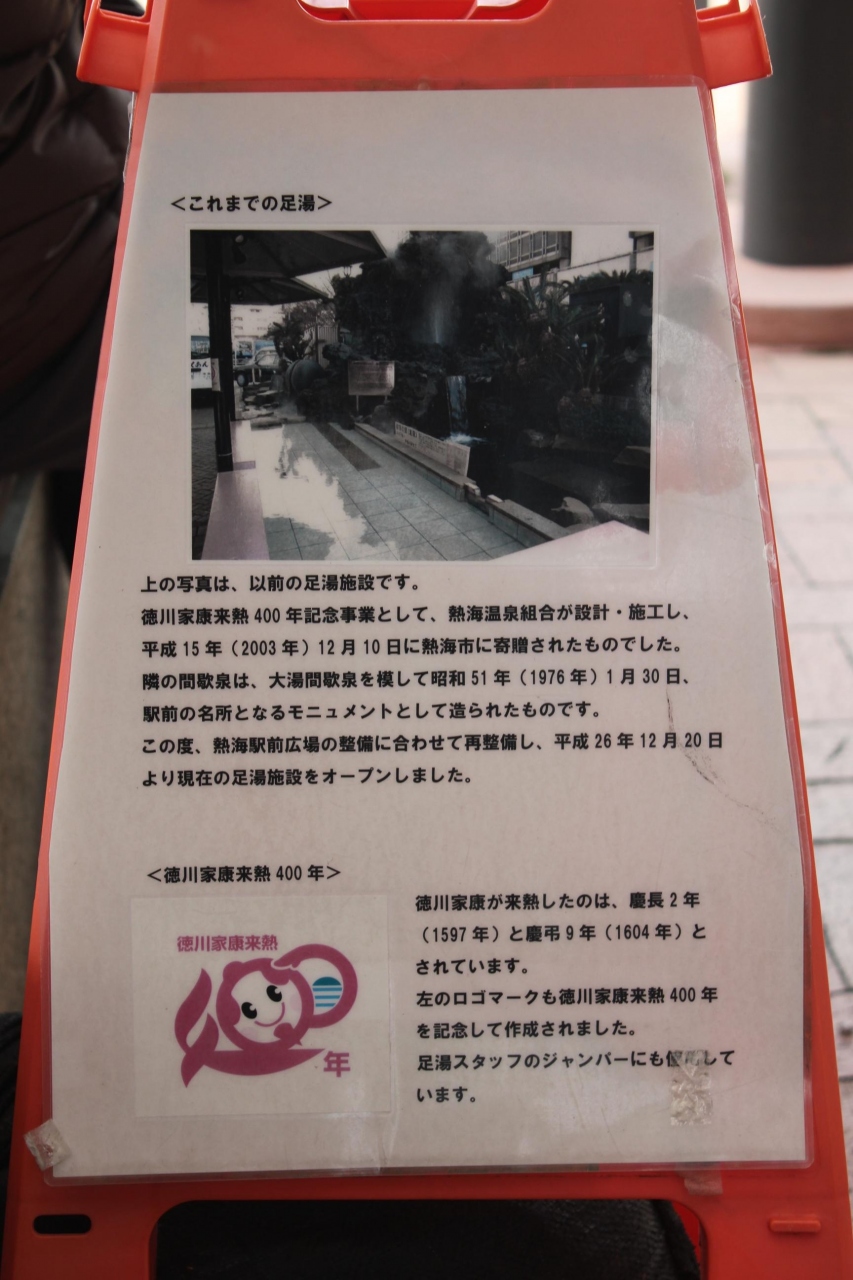 ＜これまでの足湯＞
上の写真は、以前の足湯施設です。
徳川家康来熱400年記念事業として、熱海温泉組合が設計・施工し、
平成15年（2003年）12月10日に熱海市に寄贈されたものでした。
隣の間歇泉は、大湯間歇泉を模して昭和51年（1976年）1月30日、
駅前の名所となるモニュメントとして造られたものです。
この度、熱海駅前広場の整備に合わせて再整備し、平成26年12月20日
より現在の足湯施設をオープンしました。
＜徳川家康来熱400年＞
徳川家康来熱
400
年
徳川家康が来熱したのは、慶長2年
（1597年）と慶弔9年（1604年）と
されています。
左のロゴマークも徳川家康来熱400年
を記念して作成されました。
足湯スタッフのジャンバーにも使用して
います。